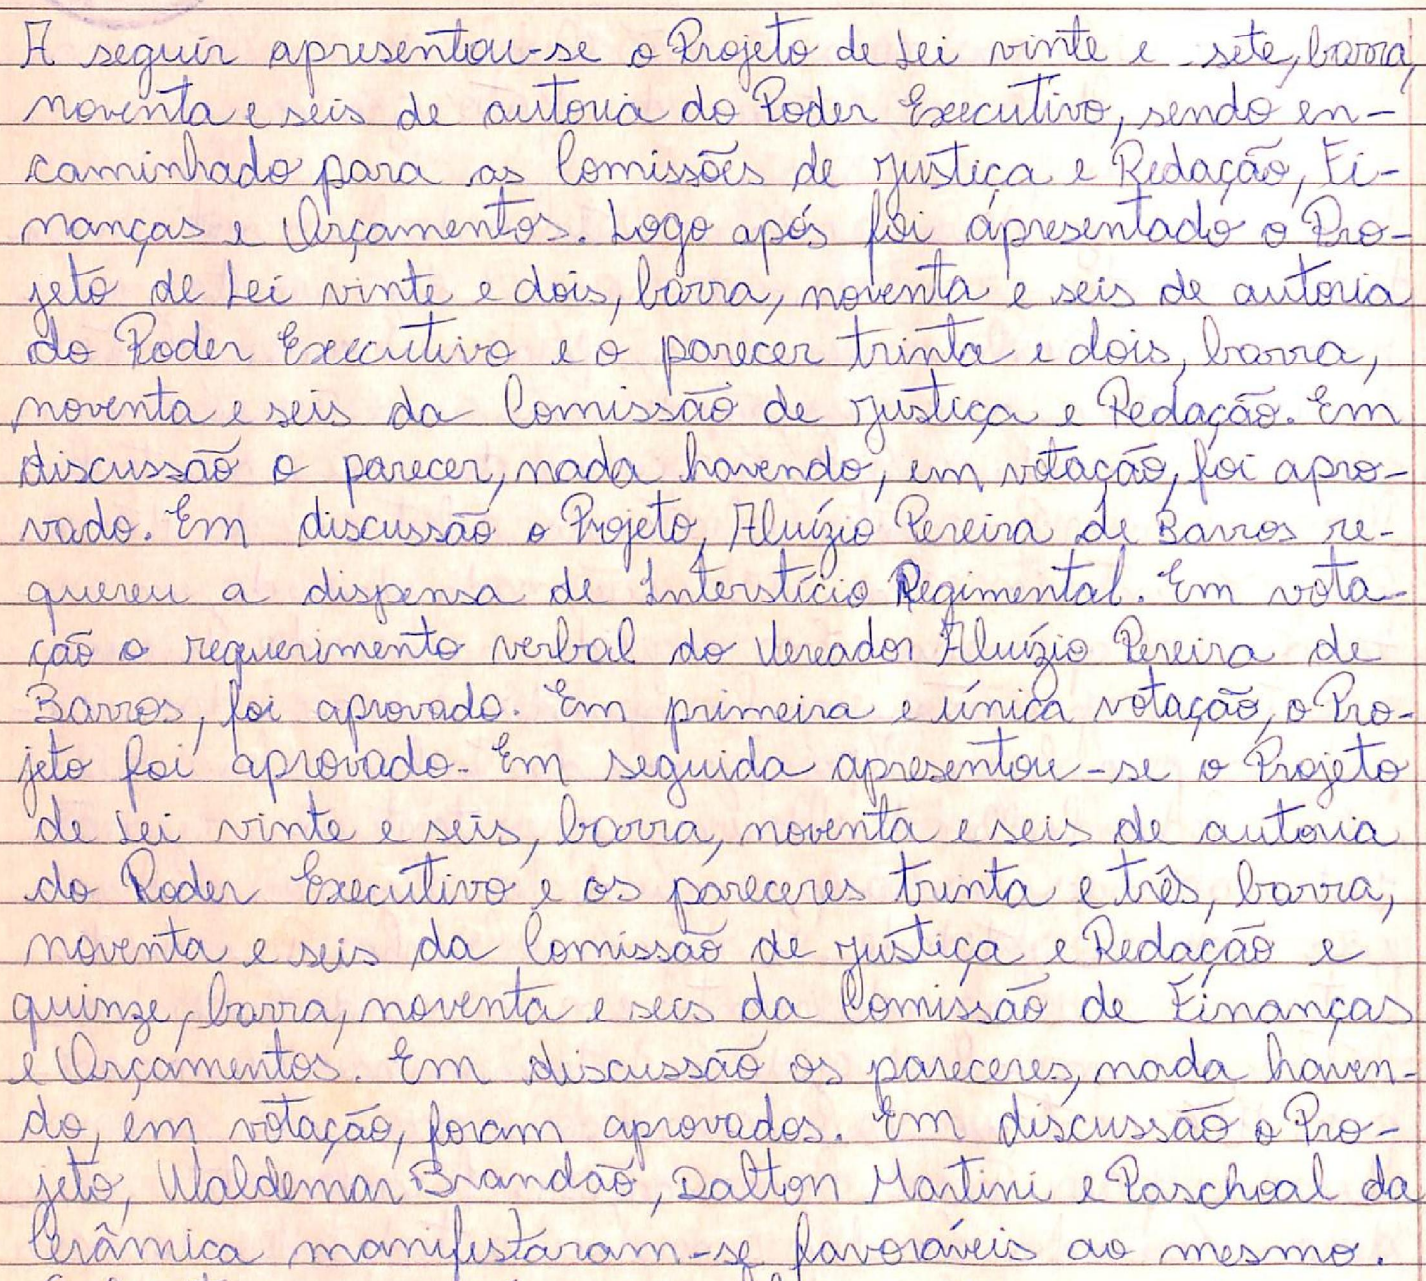 A seguir apresentou-se o Projeto de Lei vinte e sete, barra,
noventa e seis de autoria do Poder Executivo, sendo en-
caminhado para as Comissões de Justiça e Redação, Fi-
nanças e Orçamentos. Logo após foi apresentado o Pro-
jeto de Lei vinte e dois, barra, noventa e seis de autoria
do Poder Executivo e o parecer trinta e dois, barra,
noventa e seis da Comissão de Justiça e Redação. Em
discussão o parecer, nada havendo, em votação, foi apro-
vado. Em discussão o Projeto, Aluízio Pereira de Barros re-
quereu a dispensa de Interstício Regimental. Em vota-
ção o requerimento verbal do Vereador Aluízio Pereira de
Barros, foi aprovado. Em primeira e única votação, o Pro-
jeto foi aprovado. Em seguida apresentou-se o Projeto
de Lei vinte e seis, barra, noventa e seis de autoria
do Poder Executivo e os pareceres trinta e três, barra,
noventa e seis da Comissão de Justiça e Redação e
quinze, barra, noventa e seis da Comissão de Finanças
e Orçamentos. Em discussão os pareceres, nada haven-
do, em votação, foram aprovados. Em discussão o Pro-
jeto, Waldemar Brandão, Dalton Martini e Paschoal da
Cerâmica manifestaram-se favoráveis ao mesmo.